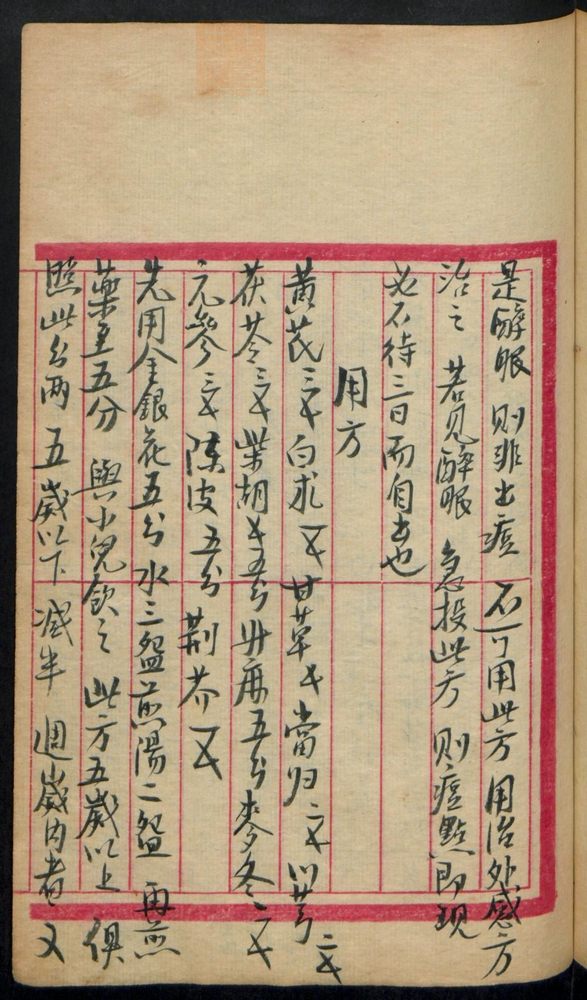 是醉眼 則非出痘 不可用此方 用治外感方
治之 若見醉眼 急投此方 則痘點即現
必不待三日而自出也
用方
黃芪三錢 白朮一錢 甘草一錢 當归二錢 川芎二錢
茯苓三錢 柴胡錢五分 升麻五分 麥冬二錢
元參三錢 陳皮五分 荆芥一錢
先用金銀花五分 水三盌 煎湯二盌 再煎
藥至五分 與小兒飲之 此方五歲以上 俱
照此分两 五歲以下 減半 週歲内者 又